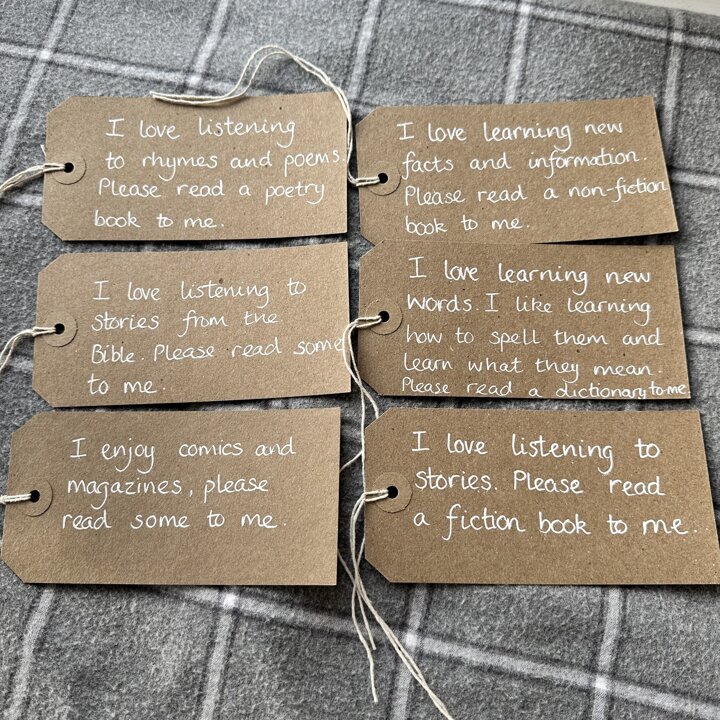 I love listening
to rhymes and poems.
Please read a poetry
book to me.
I love learning new
facts and information.
Please read a non-fiction
book to me.
I love listening to
stories from the
Bible. Please read some
to me.
I love learning new
words. I like learning
how to spell them and
learn what they mean.
Please read a dictionary to me.
I enjoy comics and
magazines, please
read some to me.
I love listening to
stories. Please read
a fiction book to me.